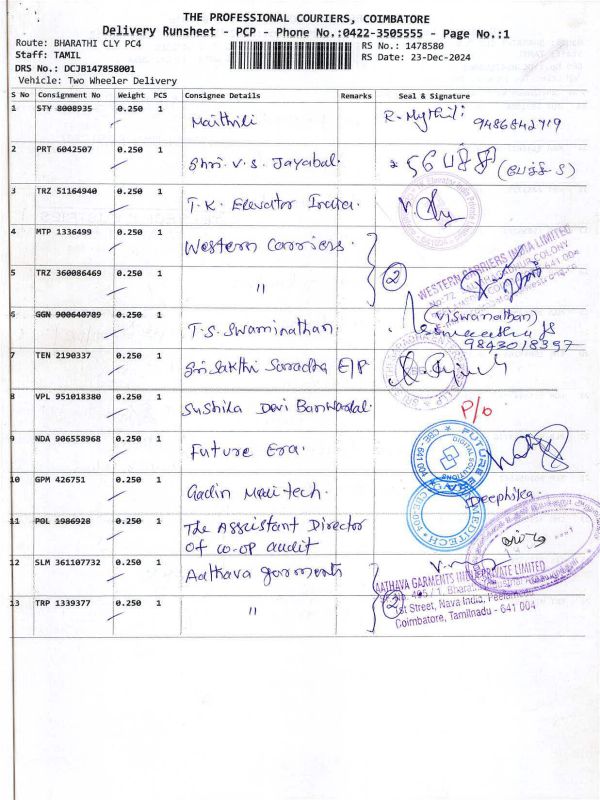 THE PROFESSIONAL COURIERS, COIMBATORE
Delivery Runsheet - PCP - Phone No.:0422-3505555 - Page No.:1
Route: BHARATHI CLY PC4
RS No.: 1478580
Staff: TAMIL
RS Date: 23-Dec-2024
DRS No.: DCJB147858001
Vehicle: Two Wheeler Delivery
S No Consignment No Weight PCS Consignee Details Remarks Seal & Signature
1 STY 8008935 0.250 1 Maithili R. Mythili 9486842719
2 PRT 6042507 0.250 1 Shri. V. S. Jayabal.
3 TRZ 51164940 0.250 1 T.K. Elevator India.
4 MTP 1336499 0.250 1 Western Carriers.
WESTERN CARRIERS INDIA LIMITED
5 TRZ 360086469 0.250 1 " 2
6 GGN 900640789 0.250 1 T.S. Swaminathan. (Viswanathan)
9843018397
7 TEN 2190337 0.250 1 Sri Sakthi Saradha E/P
8 VPL 951018380 0.250 1 Sushila Devi P/o
9 NDA 906558968 0.250 1 Future Era.
FUTURE ERA DIGITAL SOLUTIONS
10 GPM 426751 0.250 1 Deephika.
11 POL 1986928 0.250 1 The Assistant Director
of co-op audit
12 SLM 361107732 0.250 1 Aathava garments
AATHAVA GARMENTS INDIA PRIVATE LIMITED
13 TRP 1339377 0.250 1 " 2
1st Street, Nava India, Peelamedu
Coimbatore, Tamilnadu - 641 004